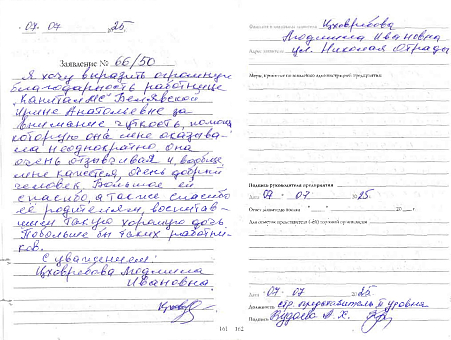 07 07 25
Заявление № 66/50
Я хочу выразить огромную
благодарность работнице
"Капитал МС" Белявской
Ирине Анатольевне за
внимание чуткость, помощь
которую она мне оказыва-
ла неоднократно, она
очень отзывчивая и, вообще
мне кажется, очень добрый
человек. Большое ей
спасибо, а также спасибо
её родителям, воспитав-
шим такую хорошую дочь.
Побольше бы таких работни-
ков.
С уважением:
Цховребова Людмила
Ивановна.
161
Фамилия и инициалы заявителя Цховребова
Людмила Ивановна
Адрес заявителя ул. Николая Отрады
Меры, принятые по заявлению администрацией предприятия
Подпись руководителя предприятия
Дата 07 07 2025.
Ответ заявителю послан 20 г.
Для отметок представителя торговой организации
Дата 07 07 2025
Должность стр. представитель II уровня
Подпись А. Х.
162